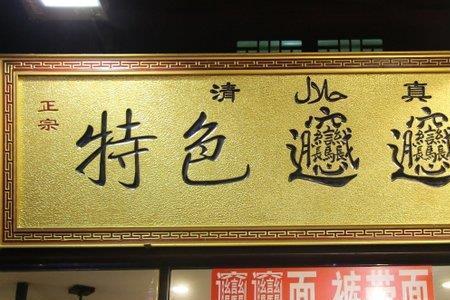 正宗
清 حلال 真
特色𰻞𰻞
𰻞𰻞面 裤带面